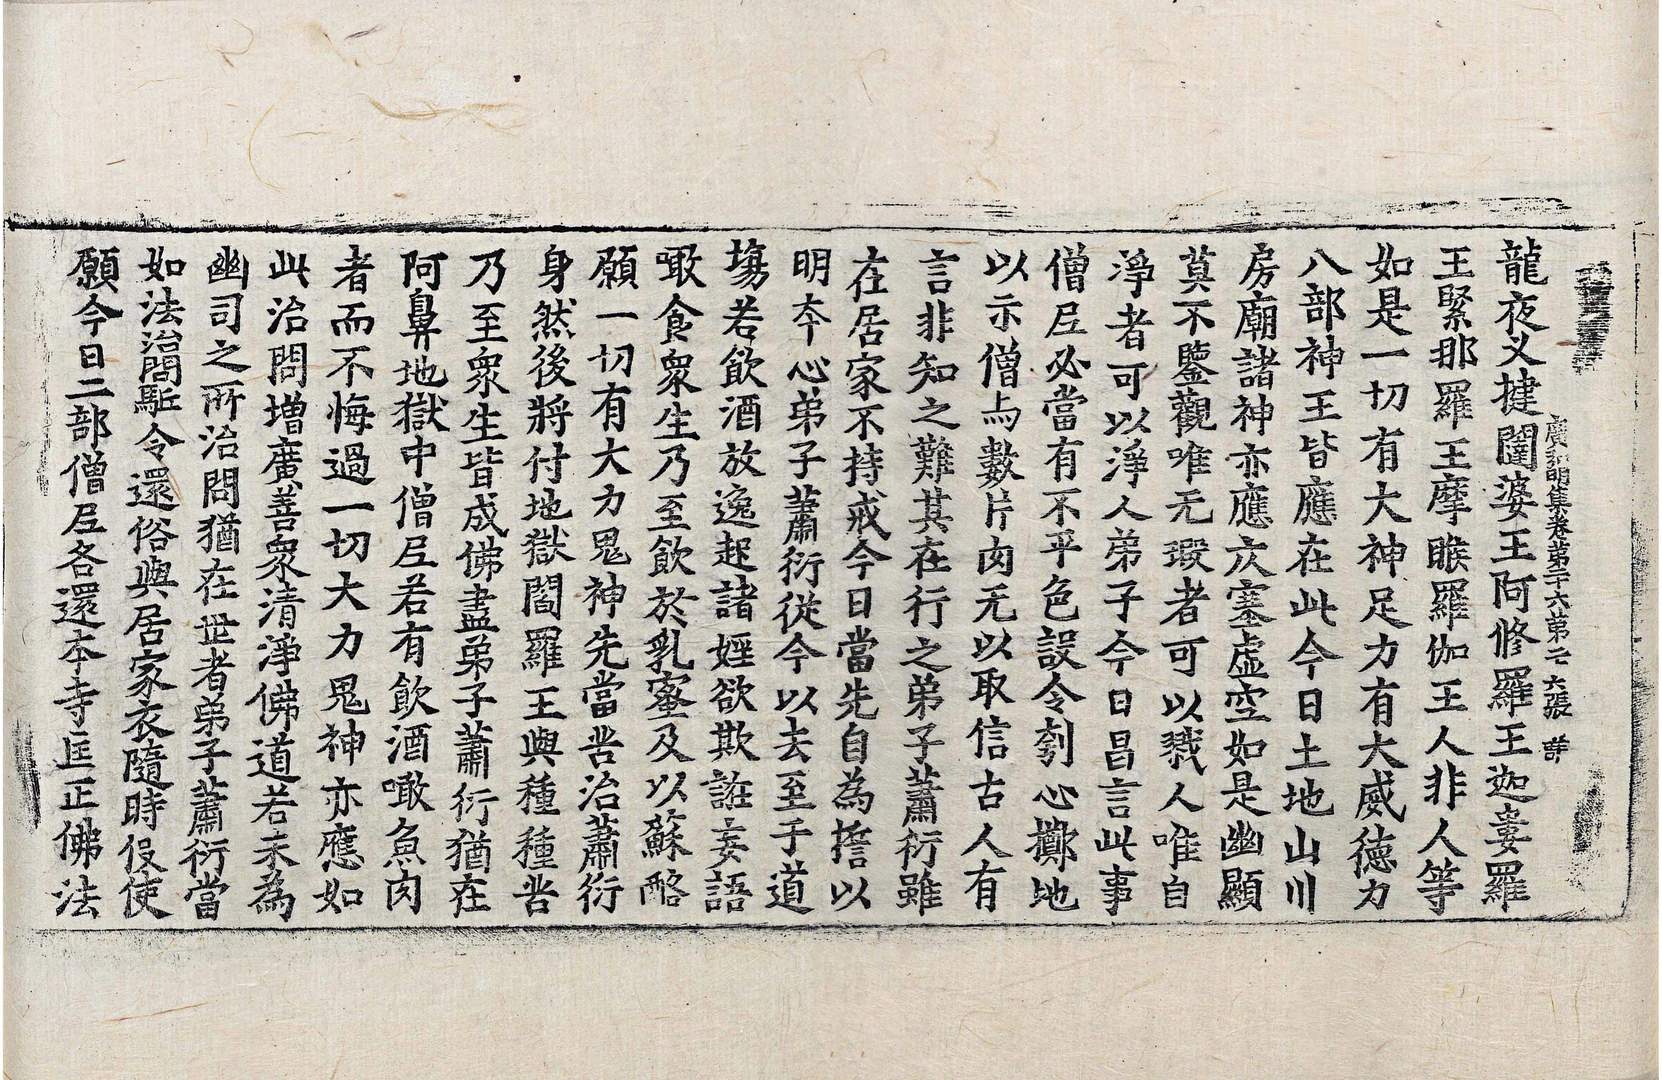 廣弘明集卷第二十六第二六張 詳
龍夜叉揵闥婆王阿修羅王迦婁羅
王緊那羅王摩睺羅伽王人非人等
如是一切有大神足力有大威徳力
八部神王皆應在此今日土地山川
房廟諸神亦應次塞虛空如是幽顯
莫不鑒觀唯无瑕者可以戮人唯自
淨者可以淨人弟子今日昌言此事
僧尼必當有不平色設令刳心擲地
以示僧与數片肉无以取信古人有
言非知之難其在行之弟子蕭衍雖
在居家不持戒今日當先自為誓以
明本心弟子蕭衍從今以去至于道
場若飲酒放逸起諸婬欲欺誑妄語
噉食衆生乃至飲於乳蜜及以蘇酪
願一切有大力鬼神先當苦治蕭衍
身然後將付地獄閻羅王與種種苦
乃至衆生皆成佛盡弟子蕭衍猶在
阿鼻地獄中僧尼若有飲酒噉魚肉
者而不悔過一切大力鬼神亦應如
此治問增廣善衆清淨佛道若未為
幽司之所治問猶在世者弟子蕭衍當
如法治問駈令還俗與居家衣隨時役使
願今日二部僧尼各還本寺匡正佛法